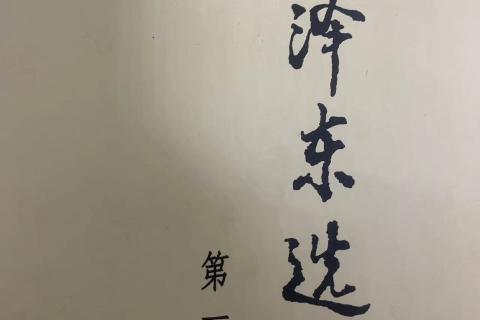 泽东选
第一